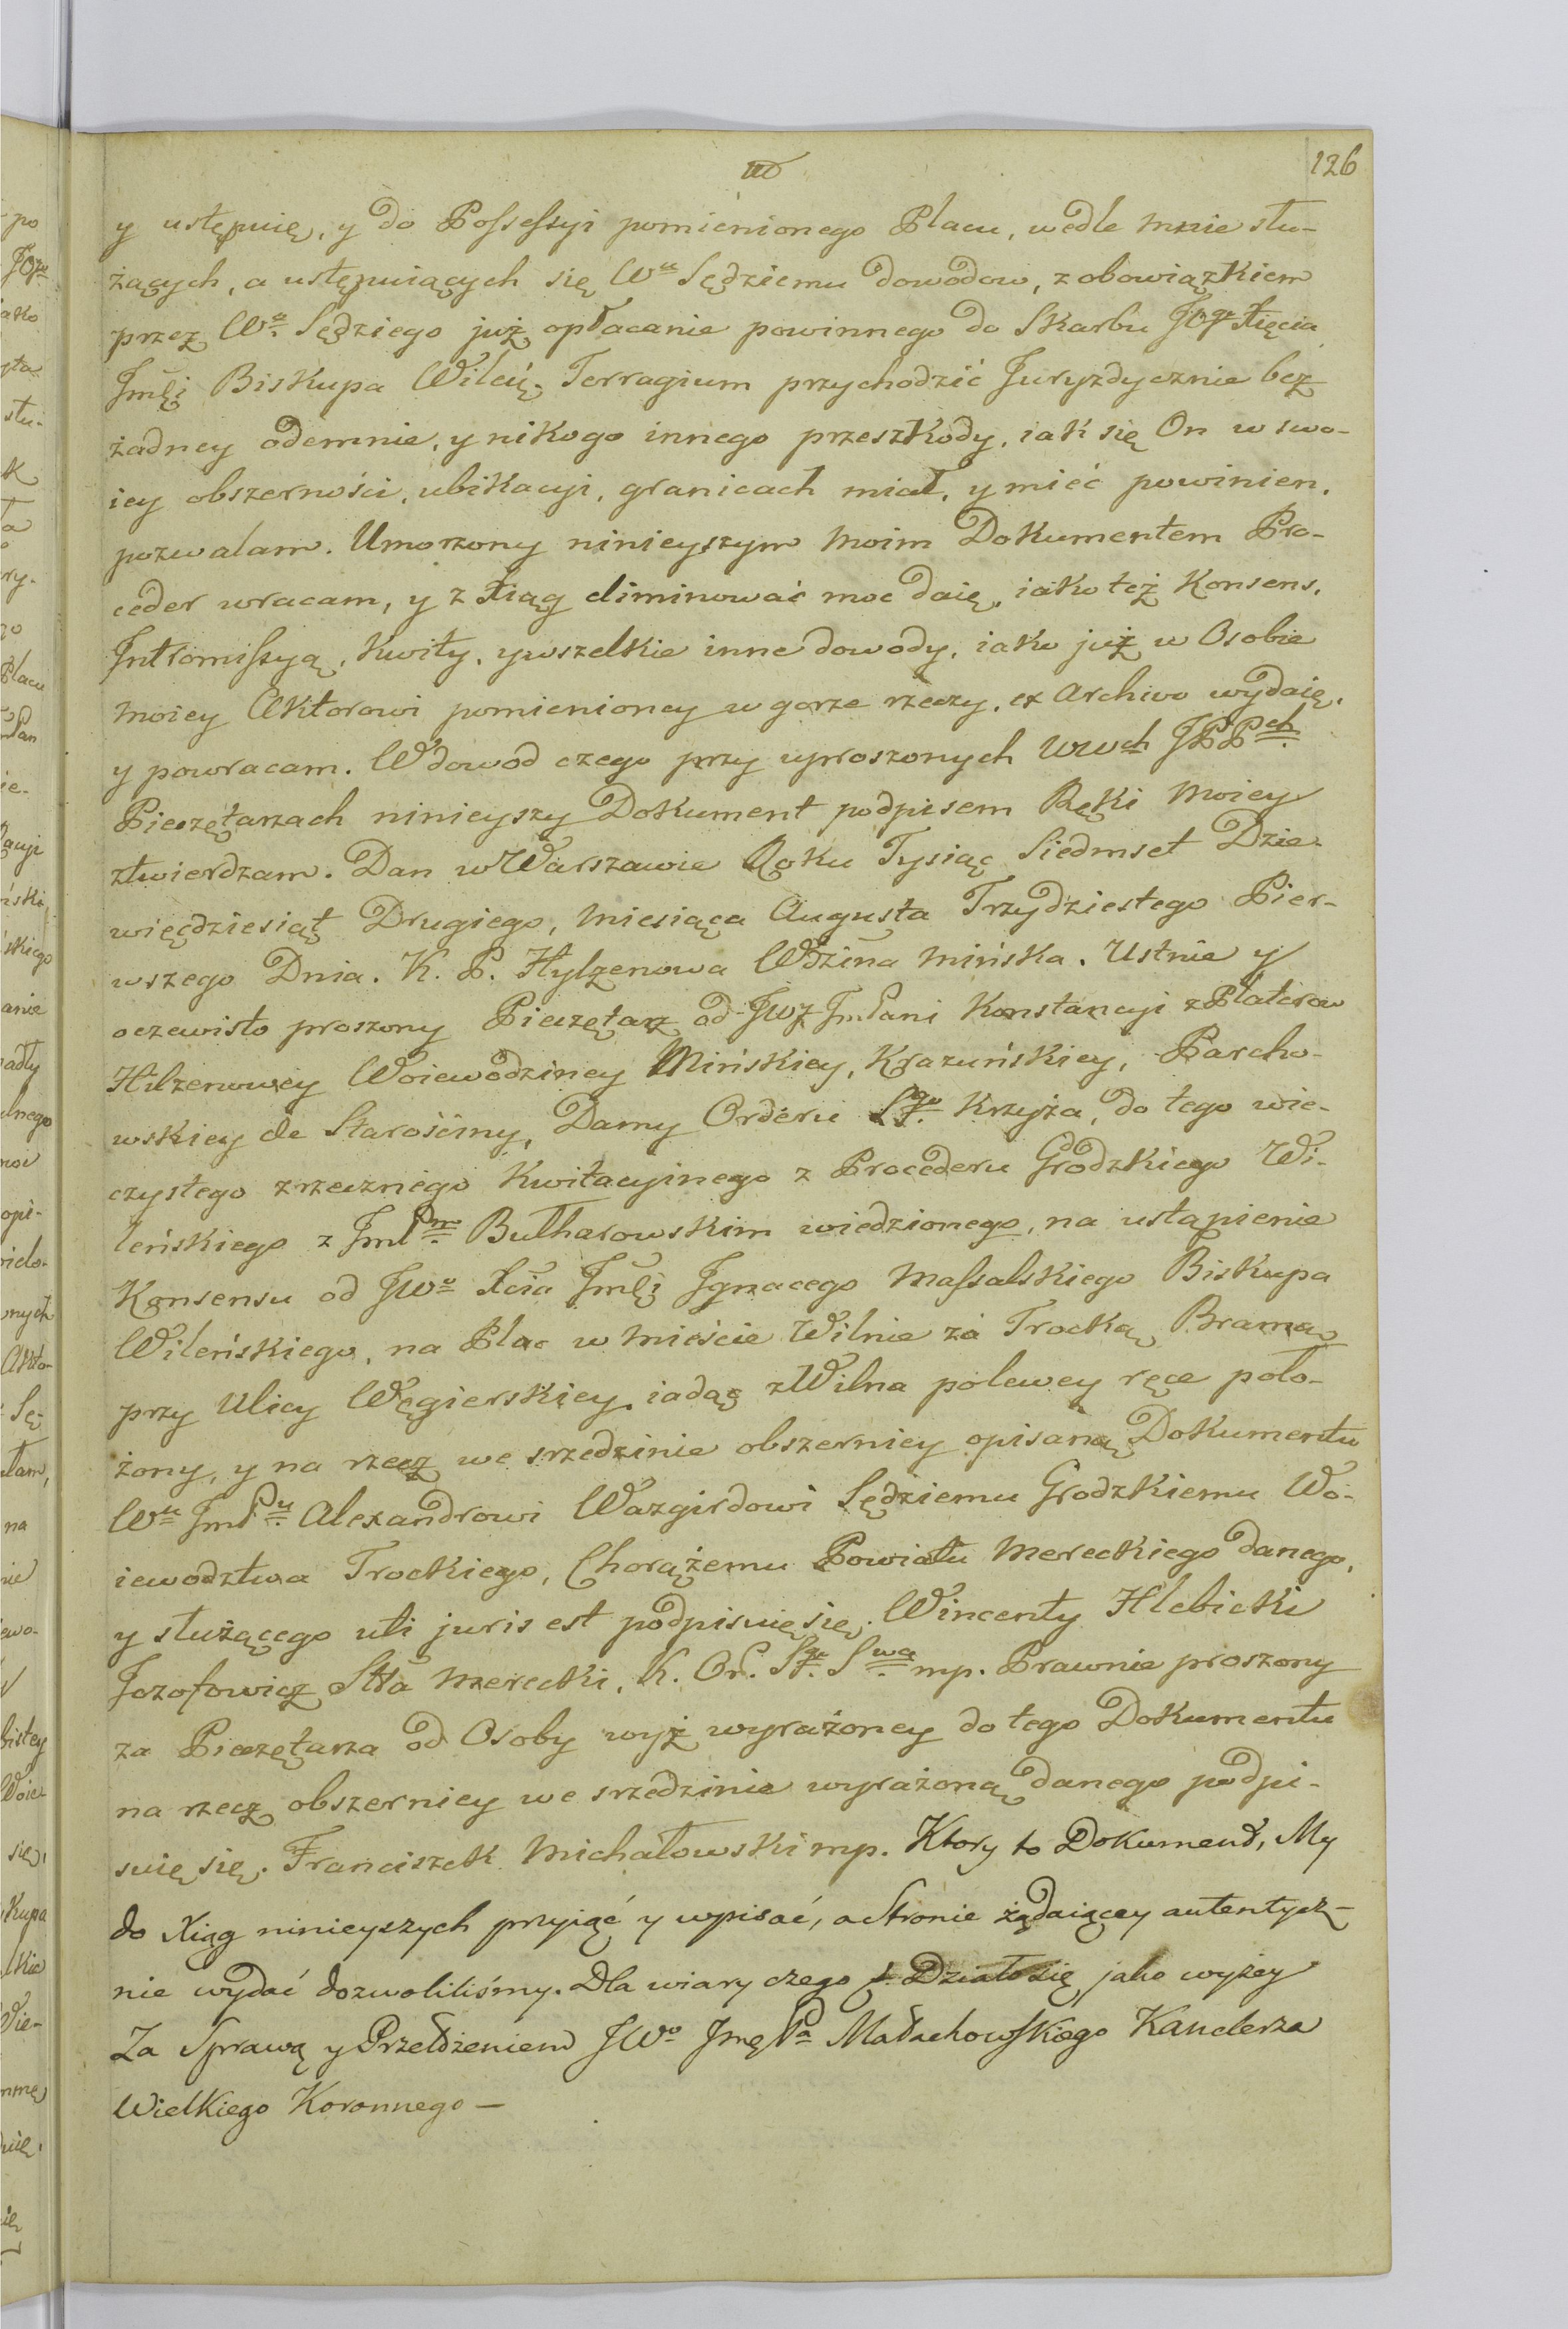 126
y ustępuię, y do Possessyi pomienionego Placu, wedle mnie słu-
żących, a ustępuiących się Wu Sędziemu dowodow, z obowiązkiem
przez Wo Sędziego już opłacanie powinnego do Skarbu JOgo Xięcia
Jmci Biskupa Wileń: Terragium przychodzić Juryzdycznie bez
żadney odemnie, y nikogo innego przeszkody, iak się On w swo-
iey obszerności, ubikacyi, granicach miał, y mieć powinien,
pozwalam. Umorzony ninieyszym moim Dokumentem Pro-
ceder wracam, y z Xiąg eliminować moc daię, iako też Konsens,
Intromissyą, Kwity, y wszelkie inne dowody, iako już w Osobie
moiey Aktorowi pomienioney w gorze rzeczy, ex Archivo wydaię,
y powracam. W dowod czego przy uproszonych WWch JPPch
Pieczętarzach ninieyszy Dokument podpisem Ręki moiey
ztwierdzam. Dan w Warszawie Roku Tysiąc Siedmset Dzie-
więćdziesiąt Drugiego, miesiąca Augusta Trzydziestego Pier-
wszego Dnia. K. P. Hylzenowa Wdzina Mińska. Ustnie y
oczewisto proszony Pieczętarz od JWJ JmPani Konstancyi z Platerow
Hilzenowey Woiewodziney Mińskiey, Krazuńskiey, Parcho-
wskiey de Starościny, Damy Orderu Sgo Krzyża, do tego wie-
czystego zrzecznego Kwitacyinego z Procederu Grodzkiego Wi-
leńskiego z JmPm Butharowskim wiedzionego, na ustąpienie
Konsensu od JWo Xcia Jmci Jgnacego Massalskiego Biskupa
Wileńskiego, na Plac w mieście Wilnie za Trocką Bramą
przy Ulicy Węgierskiey, iadąc z Wilna polewey ręce poło-
żony, y na rzecz we srzedzinie obszerniey opisaną Dokumentu
Wu JmPu Alexandrowi Wazgirdowi Sędziemu Grodzkiemu Wo-
iewodztwa Trockiego, Chorążemu Powiatu Mereckiego danego,
y służącego uti juris est podpisuię się. Wincenty Hlebicki
Jozofowicz Stta Merecki, K. Or. Sgo Swa mp. Prawnie proszony
za Pieczętarza od Osoby wyż wyrażoney do tego Dokumentu
na rzecz obszerniey we srzedzinie wyrażoną danego podpi-
suię się. Franciszek Michałowski mp. Ktory to Dokument, My
do Xiąg ninieyszych przyiąć y wpisać, a Stronie żądaiącey autentycz-
nie wydać dozwoliliśmy. Dla wiary czego Działo się jako wyżey
Za Sprawą y Przełożeniem JWo Jmę Pa Małachowskiego Kanclerza
Wielkiego Koronnego —